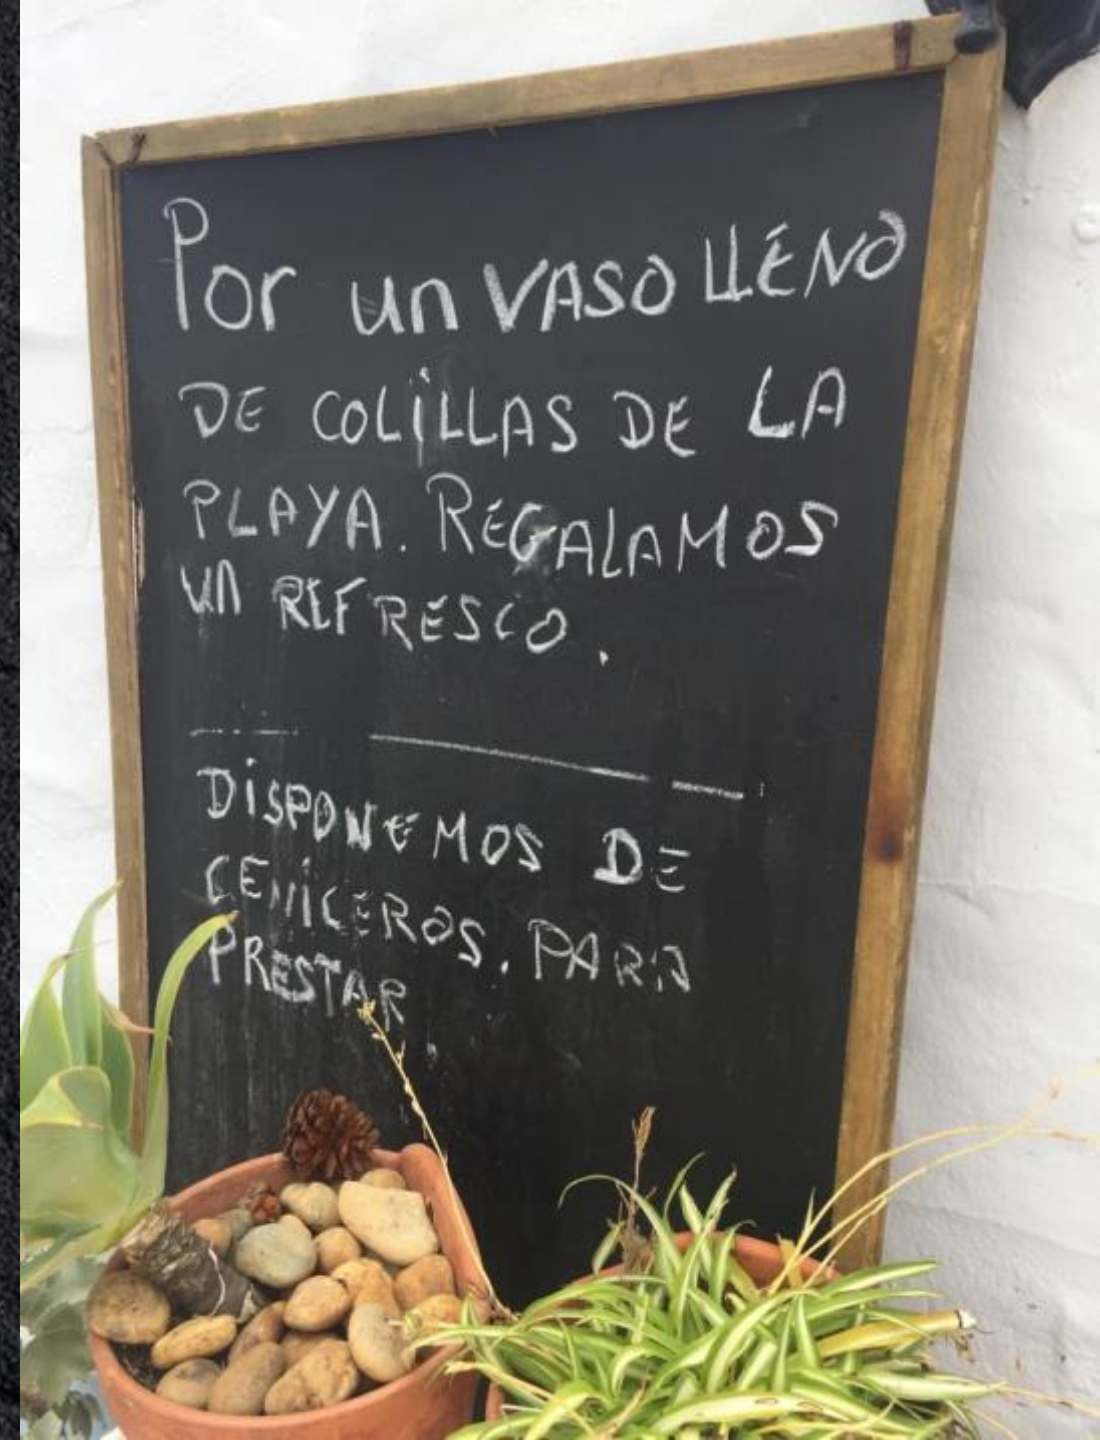 Por un VASO LLENO
DE COLiLLAS DE LA
PLAYA. REGALAMOS
un REFRESCO.
DiSPONEMOS DE
CENiCEROS. PARA
PRESTAR